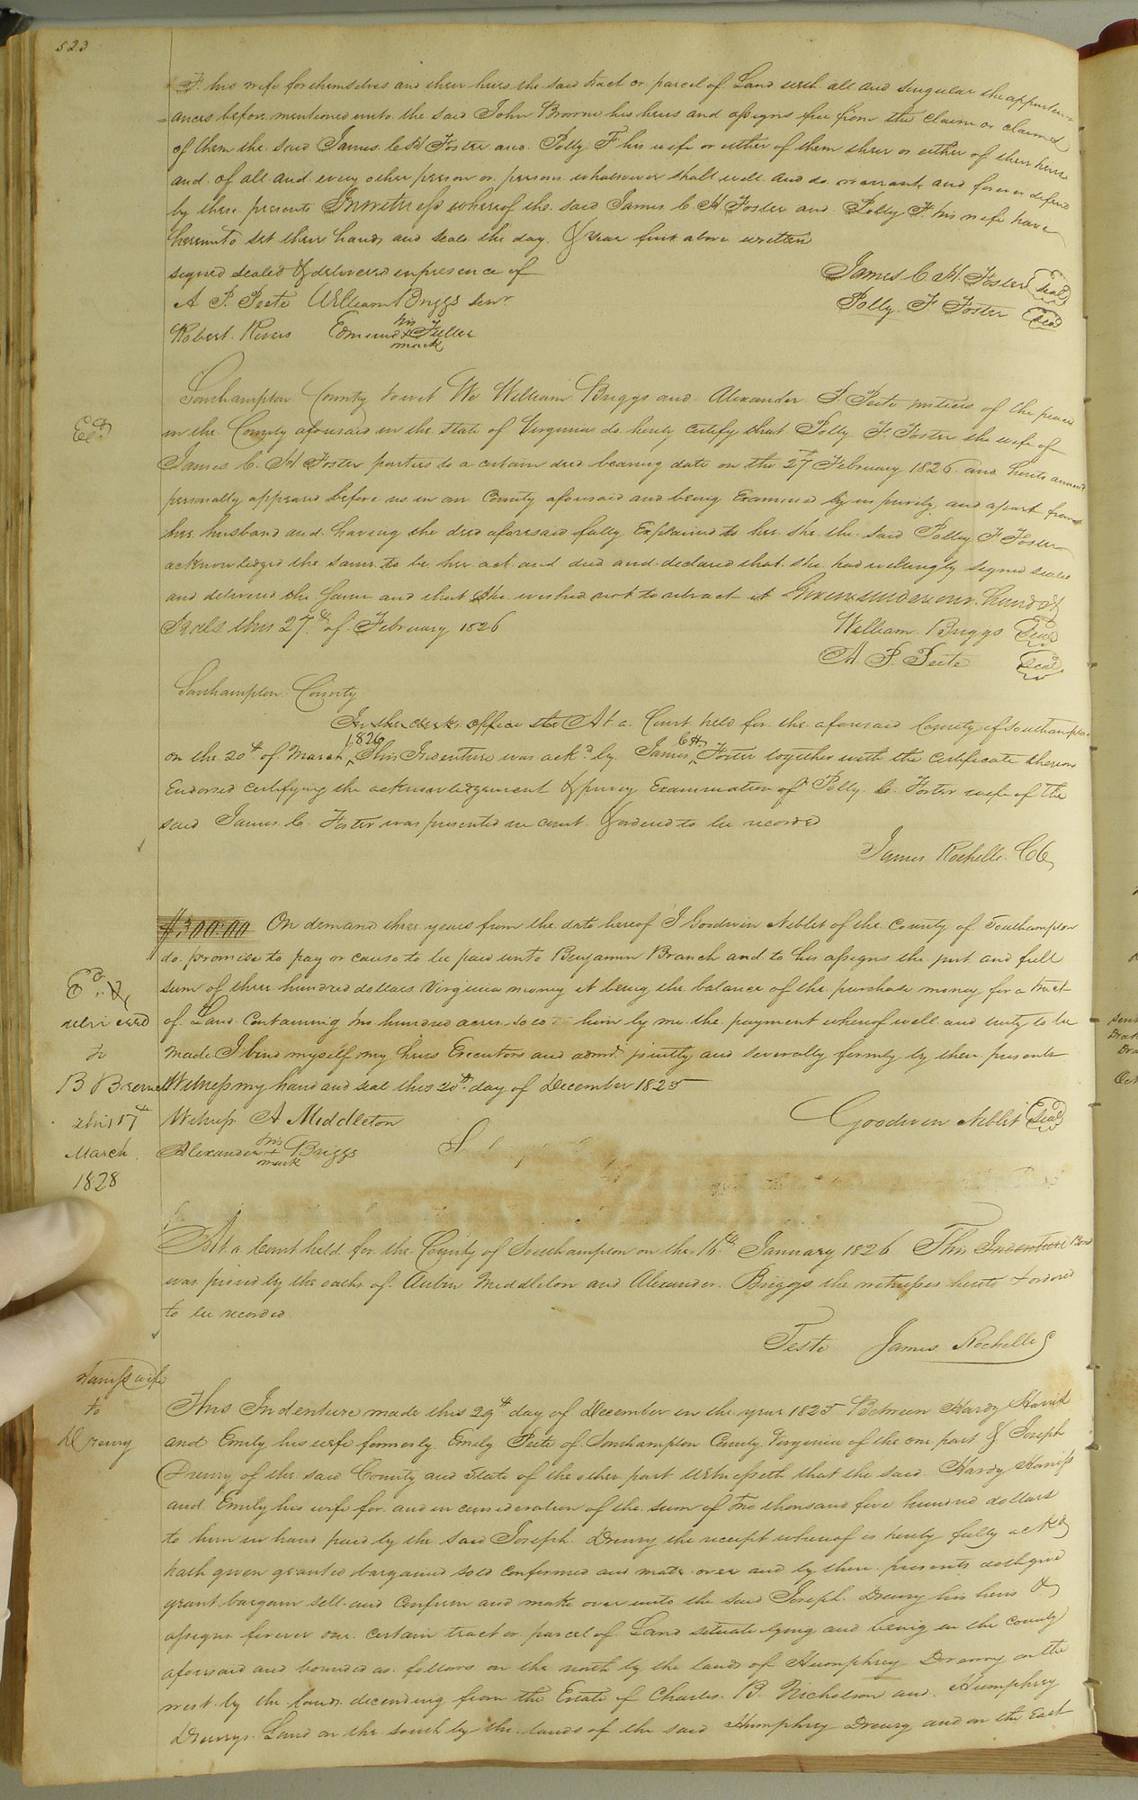 523
F. his wife for themselves and their heirs the said tract or parcel of Land with all and singular the appurten
ances before mentioned unto the said John Browne his heirs and assigns free from the claim or claims
of them the said James C. H Foster and Polly F his wife or either of them their or either of their heirs
and of all and every other person or persons whatsoever shall well and do warrant and forever defend
by these presents In witness whereof the said James C H Foster and Polly F. his wife have
hereunto set their hands and seals the day & year first above written
signed sealed & delivered in presence of
James C. H. Foster Seal
A. P. Peete William Briggs Senr
Polly F Foster Seal
Robert Rivers Edmund his + mark Fuller
Exd
Southampton County towit We William Briggs and Alexander P. Peete justices of the peace
in the County aforesaid in the state of Virginia do hereby certify that Polly F Foster the wife of
James C. H Foster parties to a certain deed bearing date on the 27th February 1826 and hereto annexed
personally appeared before us in our County aforesaid and being Examined by us privily and apart from
her husband and having the deed aforesaid fully Explained to her she the said Polly F Foster
acknowledged the same to be her act and deed and declared that she had willingly signed sealed
and delivered the same and that she wished not to retract it Given under our hands &
Seals this 27th of February 1826
William Briggs Seal
A P. Peete Seal
Southampton County
In the clerks office the At a Court held for the aforesaid County of Southampton
on the 20th of March 1826 This Indenture was ackd by James C H Foster together with the certificate thereon
Endorsed certifying the acknowledgement & privy Examination of Polly C. Foster wife of the
said James C. Foster was presented in court & ordered to be recorded
James Rochelle CC
$300.00 On demand three years from the date hereof I Goodwin Neblet of the County of Southampton
do promise to pay or cause to be paid unto Benjamin Branch and to his assigns the just and full
sum of three hundred dollars Virginia money it being the balance of the purchase money for a tract
of Land Containing two hundred acres sold to him by me the payment whereof well and truly to be
made I bind myself my heirs Executors and admrs jointly and severally firmly by these presents
Witness my hand and seal this 20th day of December 1825
Exd &
delivered
to
B
this 17th
March
1828
Witness A Middleton
Goodwin Neblit Seal
Alexander his + mark Briggs
At a Court held for the County of Southampton on the 16th January 1826 This Indenture Bond
was proved by the oaths of Middleton and Alexander Briggs the witnesses hereto & ordered
to be recorded
Teste James Rochelle
Harris & wife
to
Drewry
This Indenture made this 29th day of December in the year 1825 Between Hardy Harris
and Emily his wife formerly Emily Peete of Southampton County Virginia of the one part & Joseph
Drewry of the said County and State of the other part Witnesseth that the said Hardy Harriss
and Emily his wife for and in consideration of the sum of two thousand five hundred dollars
to them in hand paid by the said Joseph Drewry the receipt whereof is hereby fully ackd
hath given granted bargained sold confirmed and made over and by these presents doth give
grant bargain sell and confirm and make over unto the said Joseph Drewry his heirs &
assigns forever one certain tract or parcel of Land situate lying and being in the county
aforesaid and bounded as follows on the north by the lands of Humphrey Drewry on the
west by the lands decending from the Estate of Charles B. Nicholson and Humphrey
Drewrys Land on the south by the lands of the said Humphrey Drewry and on the East